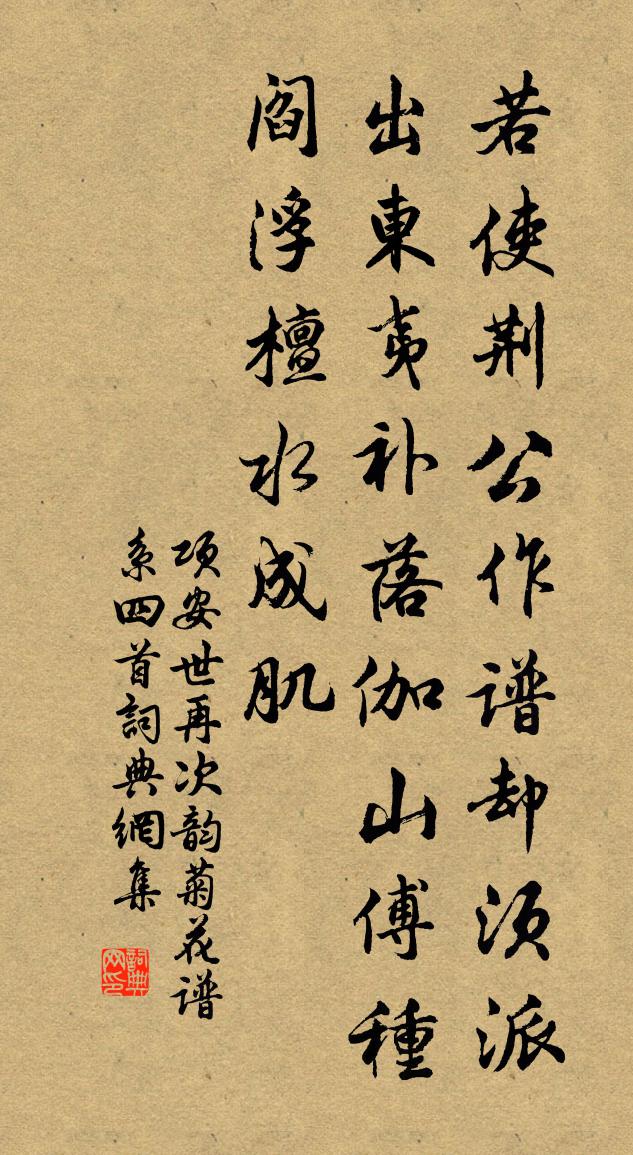 若使荆公作譜却須派
出東夷补落伽山傅種
閻浮檀水成肌
項安世再次韵菊花譜
系四首詞典網集
詞典
网印